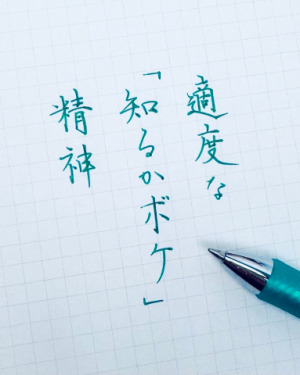 適度な
「知るかボケ」
精神